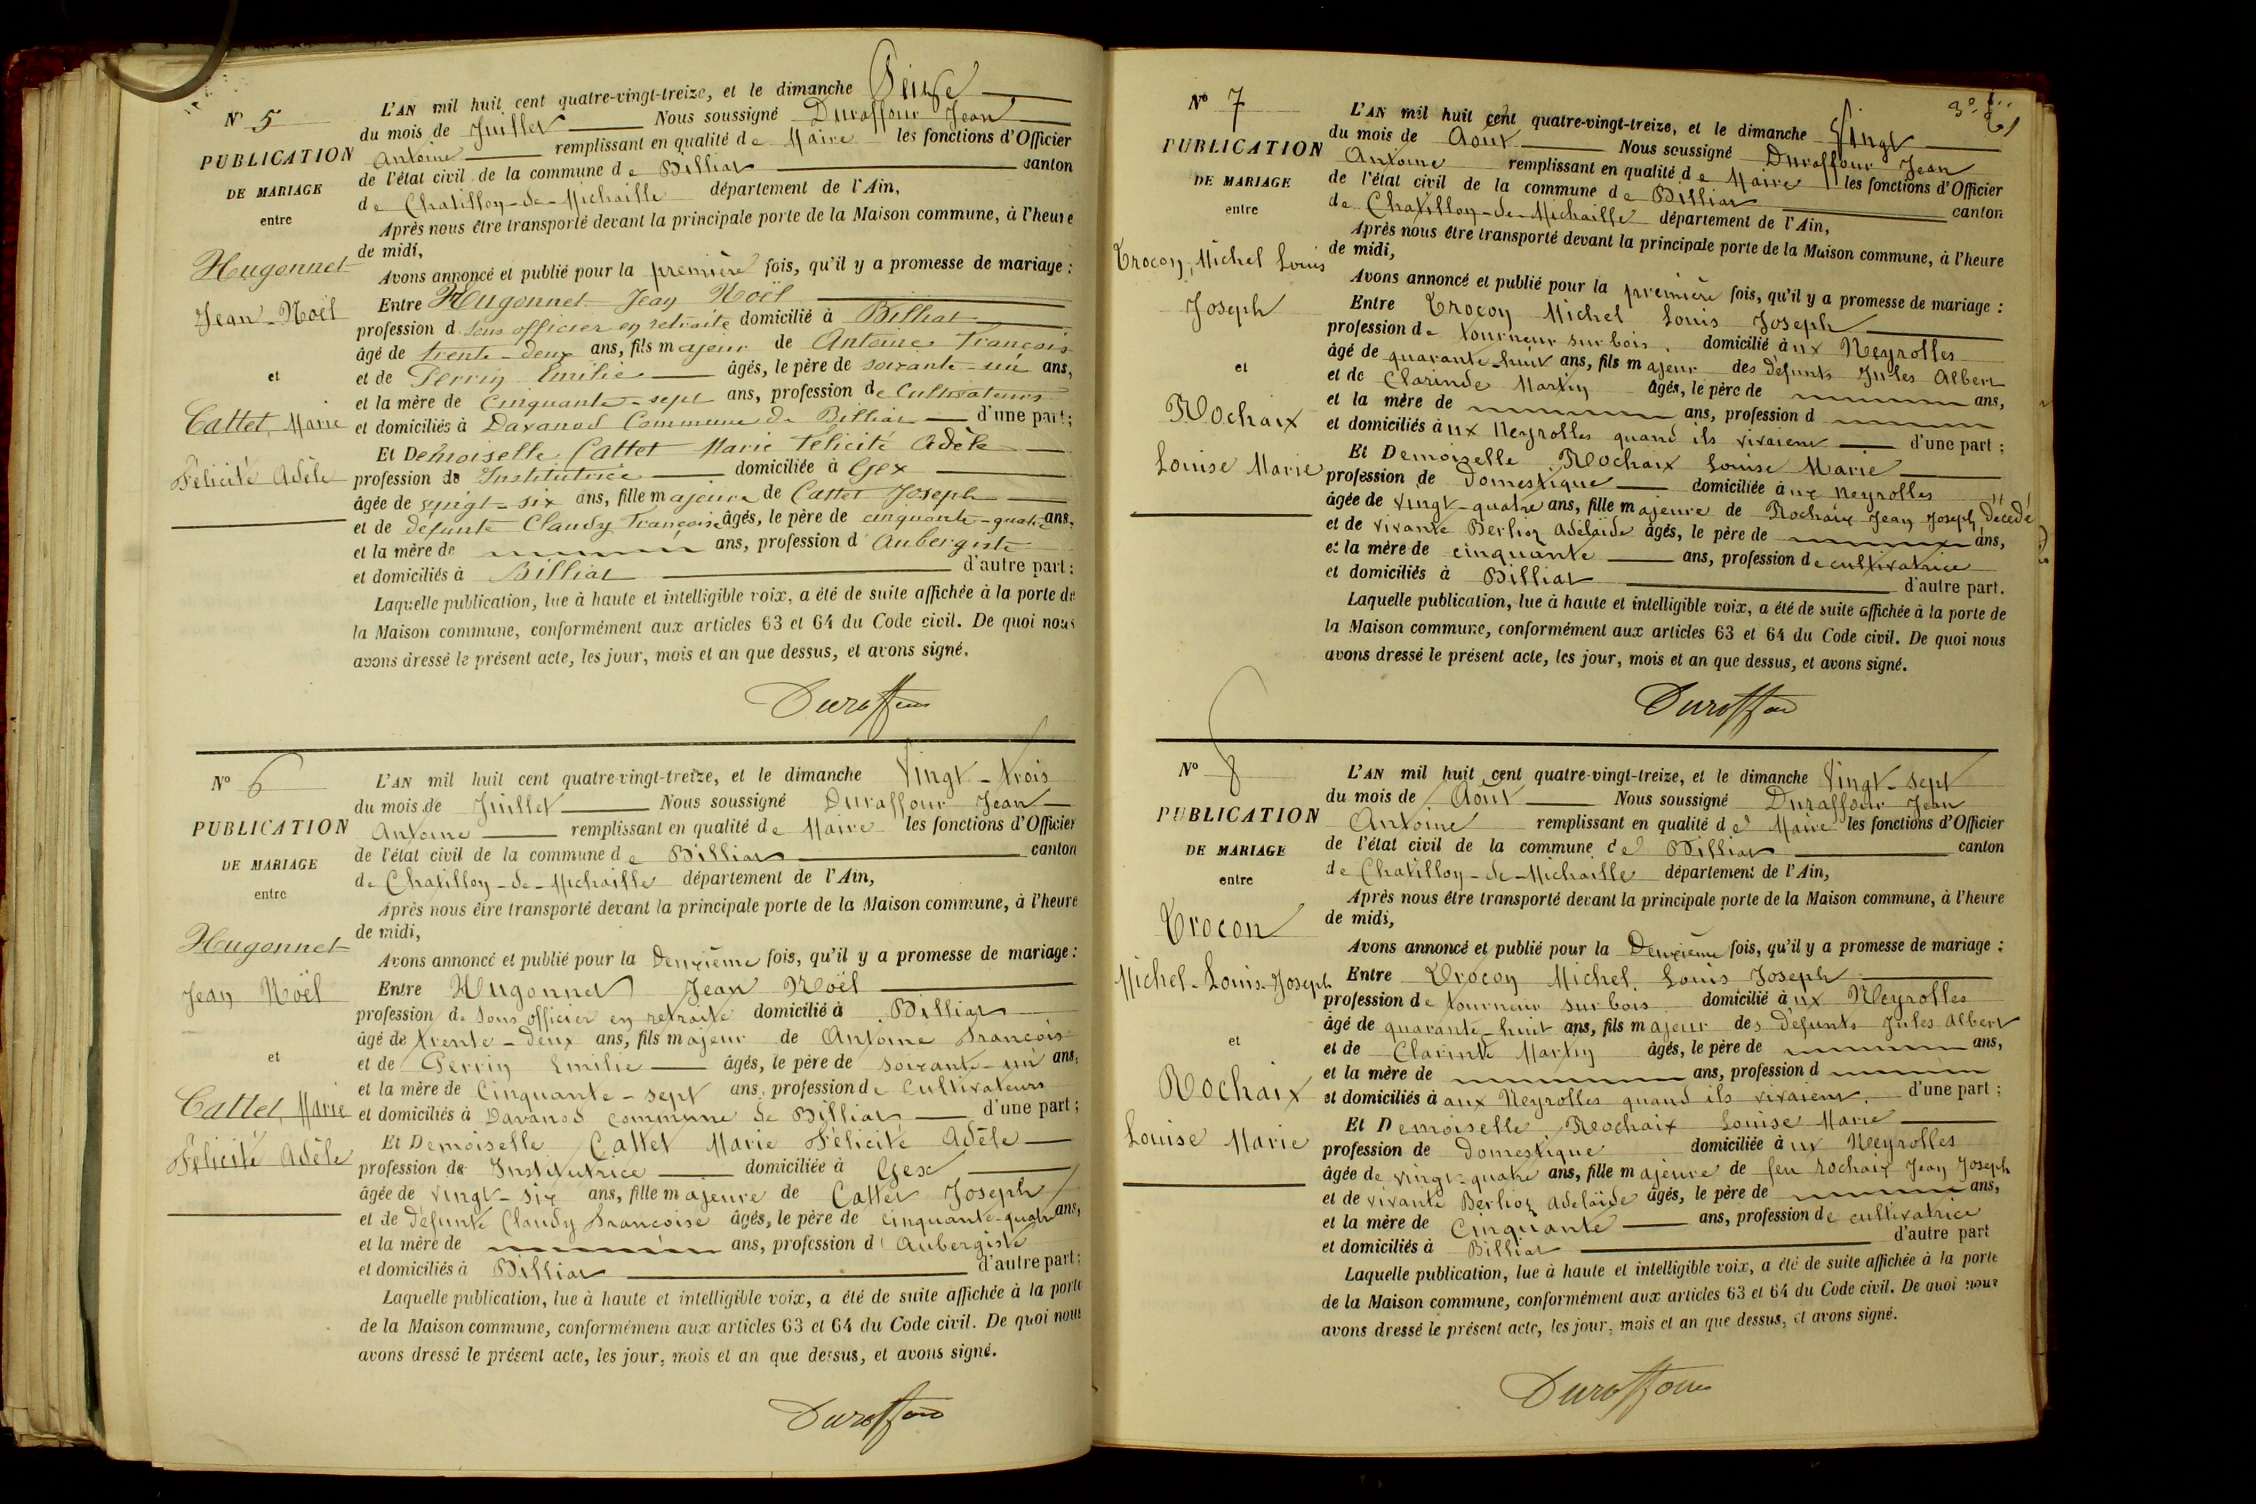 N° 5
PUBLICATION
DE MARIAGE
entre
Hugonnet
Jean-Noël
et
Cattet, Marie
Félicité Adèle
L'AN mil huit cent quatre-vingt-treize, et le dimanche Seize
du mois de Juillet Nous soussigné Duraffour Jean
Antoine remplissant en qualité de Maire les fonctions d'Officier
de l'état civil de la commune de Billiat canton
de Chatillon-de-Michaille département de l'Ain,
Après nous être transporté devant la principale porte de la Maison commune, à l'heure
de midi,
Avons annoncé et publié pour la première fois, qu'il y a promesse de mariage :
Entre Hugonnet Jean Noël
profession d sous officier en retraite domicilié à Billiat
âgé de trente-deux ans, fils majeur de Antoine François
et de Perrin Emilie âgés, le père de soixante-un ans,
et la mère de Cinquante-sept ans, profession de Cultivateurs
et domiciliés à Davanod Commune de Billiat d'une part ;
Et Demoiselle Cattet Marie Félicité Adèle
profession de Institutrice domiciliée à Gex
âgée de vingt-six ans, fille majeure de Cattet Joseph
et de défunte Claudy Françoise âgés, le père de cinquante-quatre ans,
et la mère de ans, profession d'Aubergiste
et domiciliés à Billiat d'autre part ;
Laquelle publication, lue à haute et intelligible voix, a été de suite affichée à la porte de
la Maison commune, conformément aux articles 63 et 64 du Code civil. De quoi nous
avons dressé le présent acte, les jour, mois et an que dessus, et avons signé.
Duraffour
N° 6
PUBLICATION
DE MARIAGE
entre
Hugonnet
Jean Noël
et
Cattet, Marie
Félicité Adèle
L'AN mil huit cent quatre-vingt-treize, et le dimanche Vingt-trois
du mois de Juillet Nous soussigné Duraffour Jean
Antoine remplissant en qualité de Maire les fonctions d'Officier
de l'état civil de la commune de Billiat canton
de Chatillon-de-Michaille département de l'Ain,
Après nous être transporté devant la principale porte de la Maison commune, à l'heure
de midi,
Avons annoncé et publié pour la Deuxième fois, qu'il y a promesse de mariage :
Entre Hugonnet Jean Noël
profession de Sous officier en retraite domicilié à Billiat
âgé de trente-deux ans, fils majeur de Antoine Francois
et de Perrin Emilie âgés, le père de soixante-un ans,
et la mère de Cinquante-sept ans, profession de Cultivateurs
et domiciliés à Davanod commune de Billiat d'une part ;
Et Demoiselle Cattet Marie Félicité Adèle
profession de Institutrice domiciliée à Gex
âgée de vingt-six ans, fille majeure de Cattet Joseph
et de défunte Claudy Francoise âgés, le père de cinquante-quatre ans,
et la mère de ans, profession d'Aubergiste
et domiciliés à Billiat d'autre part ;
Laquelle publication, lue à haute et intelligible voix, a été de suite affichée à la porte
de la Maison commune, conformément aux articles 63 et 64 du Code civil. De quoi nous
avons dressé le présent acte, les jour, mois et an que dessus, et avons signé.
Duraffour
N° 7
PUBLICATION
DE MARIAGE
entre
Trocon, Michel Louis
Joseph
et
Rochaix
Louise Marie
L'AN mil huit cent quatre-vingt-treize, et le dimanche Vingt
du mois de Août Nous soussigné Duraffour Jean
Antoine remplissant en qualité de Maire les fonctions d'Officier
de l'état civil de la commune de Billiat canton
de Chatillon-de-Michaille département de l'Ain,
Après nous être transporté devant la principale porte de la Maison commune, à l'heure
de midi,
Avons annoncé et publié pour la première fois, qu'il y a promesse de mariage :
Entre Trocon Michel Louis Joseph
profession de tourneur sur bois domicilié aux Neyrolles
âgé de quarante-huit ans, fils majeur des défunts Jules Albert
et de Clarinde Martin âgés, le père de ans,
et la mère de ans, profession d
et domiciliés aux Neyrolles quand ils vivaient d'une part ;
Et Demoiselle Rochaix Louise Marie
profession de Domestique domiciliée aux Neyrolles
âgée de vingt-quatre ans, fille majeure de Rochaix Jean Joseph, décédé
et de vivante Berlioz Adélaïde âgés, le père de ans,
et la mère de cinquante ans, profession de cultivatrice
et domiciliés à Billiat d'autre part.
Laquelle publication, lue à haute et intelligible voix, a été de suite affichée à la porte de
la Maison commune, conformément aux articles 63 et 64 du Code civil. De quoi nous
avons dressé le présent acte, les jour, mois et an que dessus, et avons signé.
Duraffour
N° 8
PUBLICATION
DE MARIAGE
entre
Trocon
Michel-Louis-Joseph
et
Rochaix
Louise Marie
L'AN mil huit cent quatre-vingt-treize, et le dimanche Vingt-sept
du mois de Août Nous soussigné Duraffour Jean
Antoine remplissant en qualité de Maire les fonctions d'Officier
de l'état civil de la commune de Billiat canton
de Chatillon-de-Michaille département de l'Ain,
Après nous être transporté devant la principale porte de la Maison commune, à l'heure
de midi,
Avons annoncé et publié pour la Deuxième fois, qu'il y a promesse de mariage :
Entre Trocon Michel Louis Joseph
profession de tourneur sur bois domicilié aux Neyrolles
âgé de quarante-huit ans, fils majeur des défunts Jules Albert
et de Clarinde Martin âgés, le père de ans,
et la mère de ans, profession d
et domiciliés à aux Neyrolles quand ils vivaient d'une part ;
Et Demoiselle Rochaix Louise Marie
profession de Domestique domiciliée aux Neyrolles
âgée de vingt-quatre ans, fille majeure de feu Rochaix Jean Joseph
et de vivante Berlioz Adélaïde âgés, le père de ans,
et la mère de Cinquante ans, profession de cultivatrice
et domiciliés à Billiat d'autre part
Laquelle publication, lue à haute et intelligible voix, a été de suite affichée à la porte
de la Maison commune, conformément aux articles 63 et 64 du Code civil. De quoi nous
avons dressé le présent acte, les jour, mois et an que dessus, et avons signé.
Duraffour